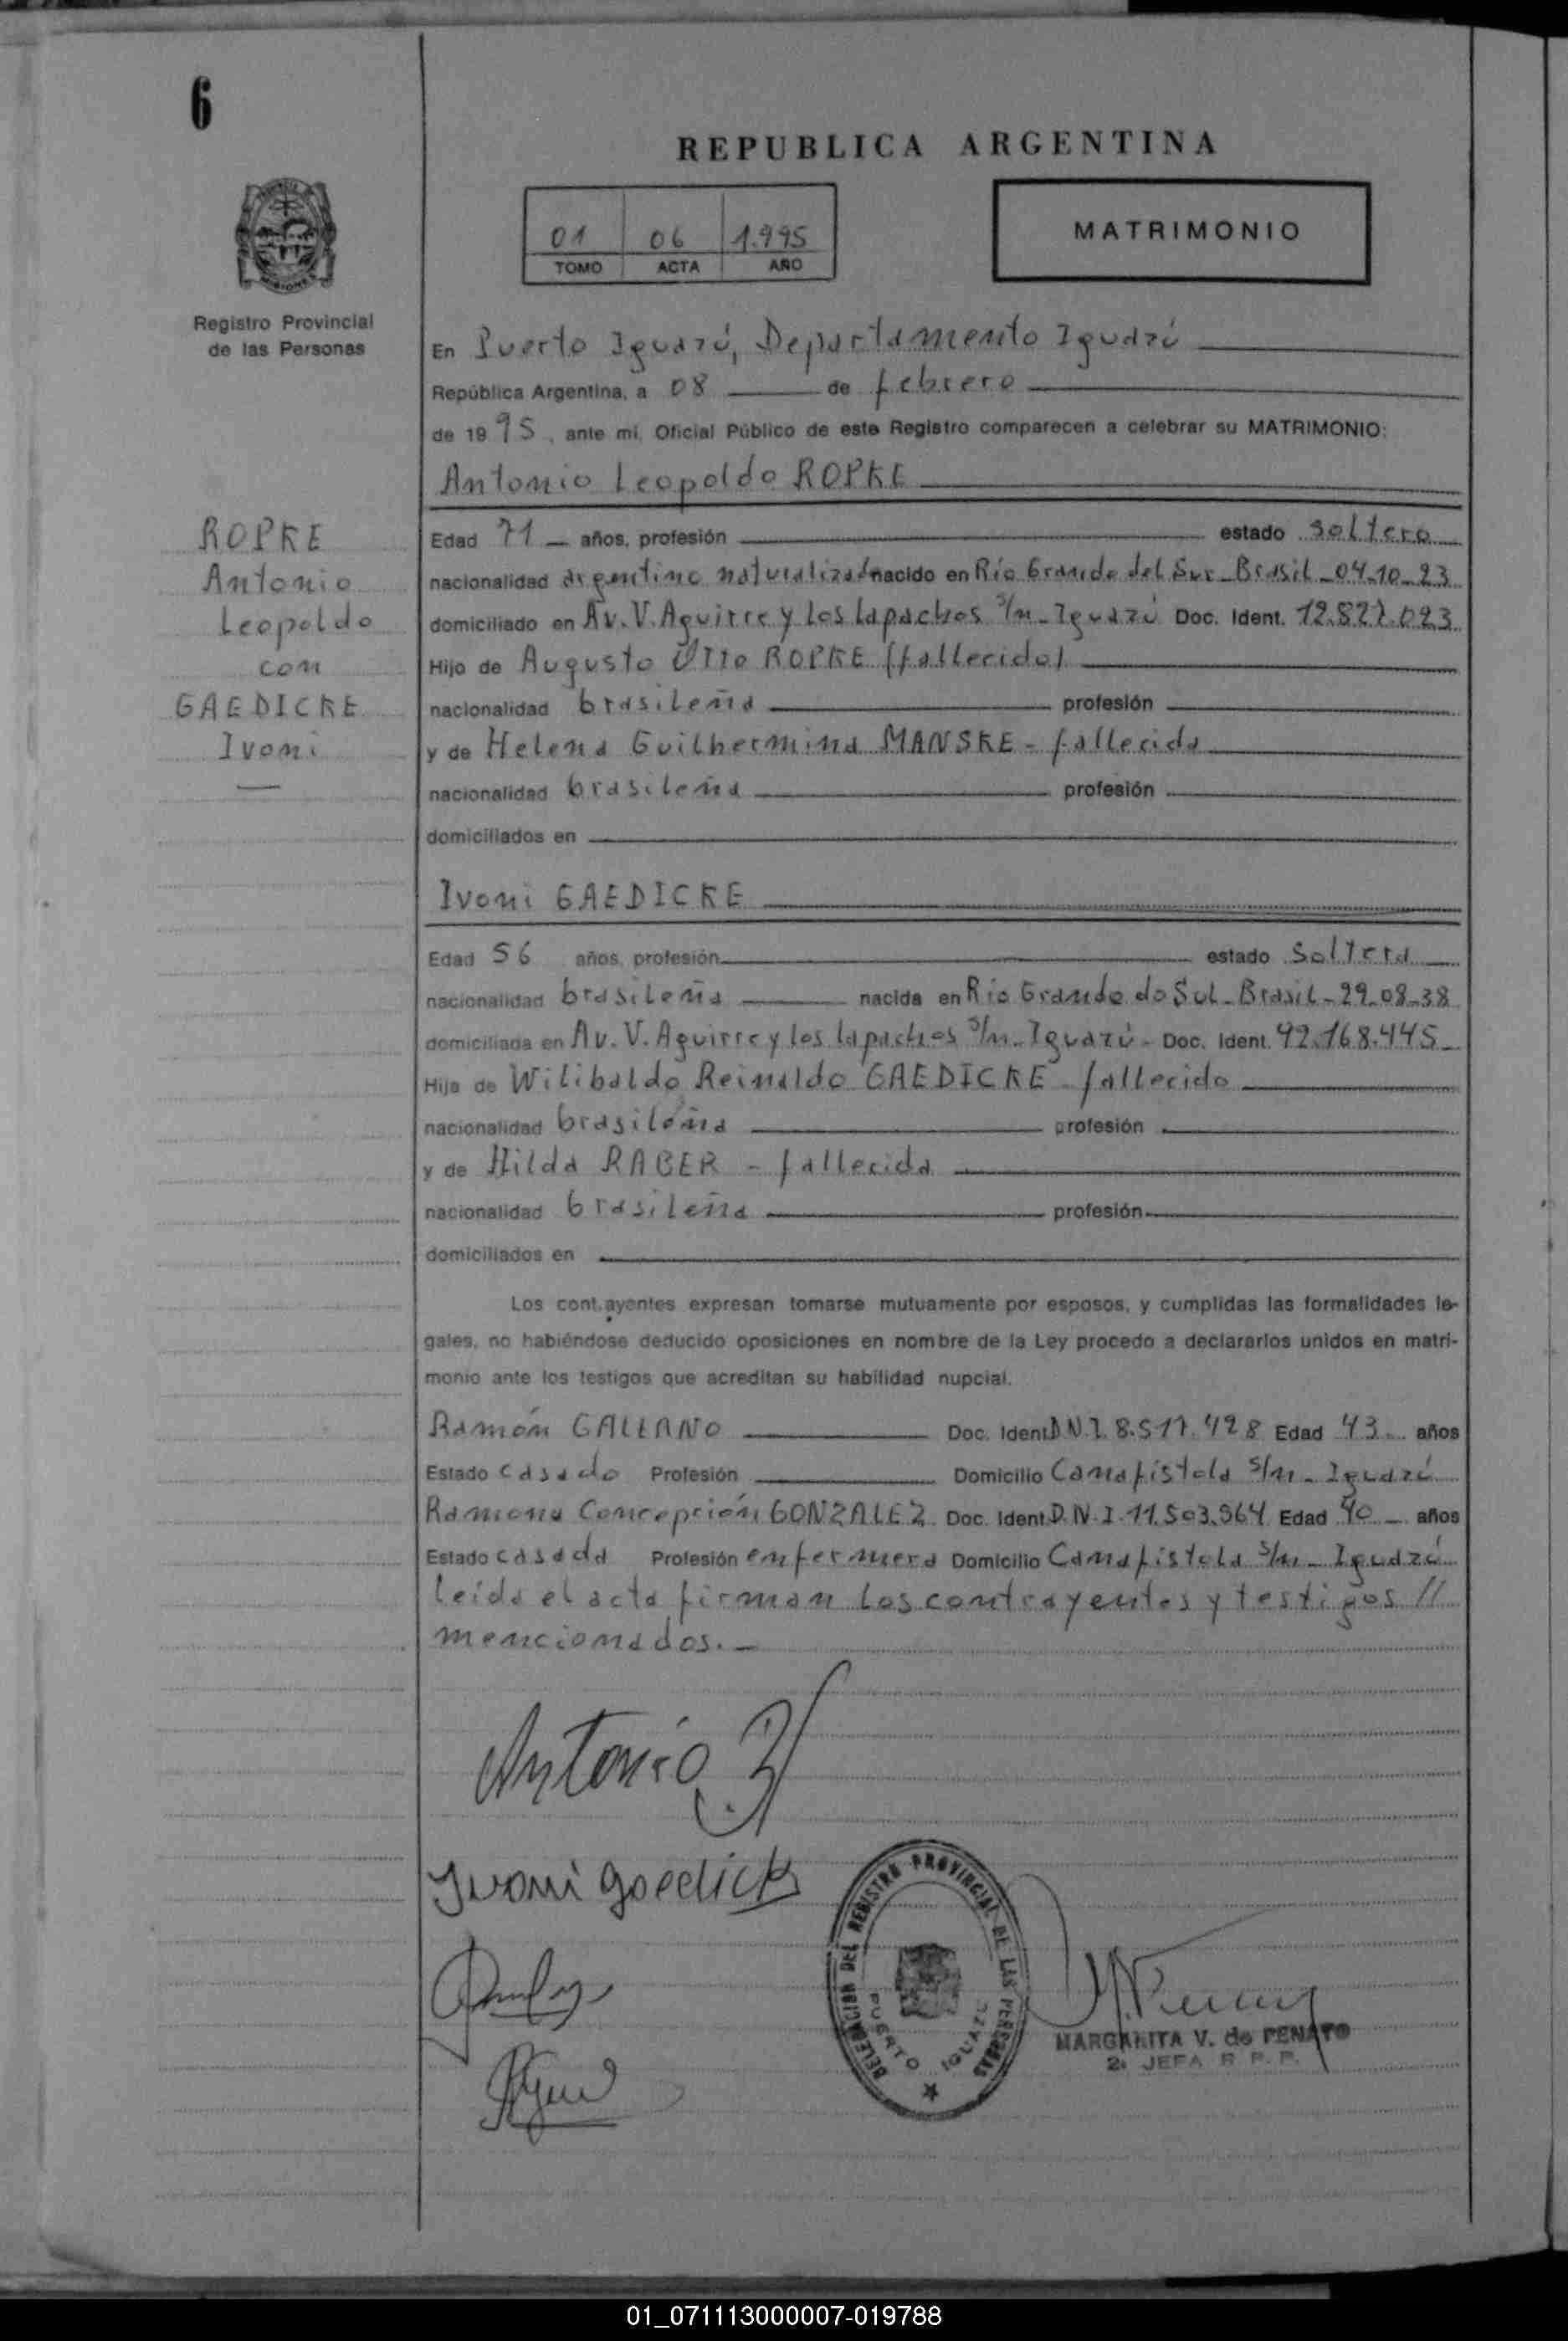 6
REPUBLICA ARGENTINA
01 06 1.995
TOMO ACTA AÑO
MATRIMONIO
Registro Provincial
de las Personas
En Puerto Iguazú, Departamento Iguazú
República Argentina, a 08 de febrero
de 1995, ante mi, Oficial Público de este Registro comparecen a celebrar su MATRIMONIO:
Antonio Leopoldo ROPKE
ROPKE
Antonio
Leopoldo
con
GAEDICKE
Ivoni
Edad 71 años, profesión estado soltero
nacionalidad argentino naturalizado nacido en Río Grande del Sur - Brasil - 04-10-23
domiciliado en Av. V. Aguirre y los lapachos s/n - Iguazú Doc. Ident. 12.827.023
Hijo de Augusto Otto ROPKE (fallecido)
nacionalidad brasileña profesión
y de Helena Guilhermina MANSKE - fallecida
nacionalidad brasileña profesión
domiciliados en
Ivoni GAEDICKE
Edad 56 años, profesión estado soltera
nacionalidad brasileña nacida en Río Grande do Sul - Brasil - 29-08-38
domiciliada en Av. V. Aguirre y los lapachos s/n - Iguazú - Doc. Ident. 92.168.445
Hija de Wilibaldo Reinaldo GAEDICKE - fallecido
nacionalidad brasileña profesión
y de Hilda RABER - fallecida
nacionalidad brasileña profesión
domiciliados en
Los contrayentes expresan tomarse mutuamente por esposos, y cumplidas las formalidades le-
gales, no habiéndose deducido oposiciones en nombre de la Ley procedo a declararlos unidos en matri-
monio ante los testigos que acreditan su habilidad nupcial.
Ramón GALEANO Doc. Ident D.N.I. 8.517.428 Edad 43 años
Estado casado Profesión Domicilio Cañafistola s/n - Iguazú
Ramona Concepción GONZALEZ Doc. Ident D.N.I. 11.503.964 Edad 40 años
Estado casada Profesión enfermera Domicilio Cañafistola s/n - Iguazú
leída el acta firman los contrayentes y testigos //
mencionados.-
Antonio
Ivoni Gaedick
DELEGACION DEL REGISTRO PROVINCIAL DE LAS PERSONAS
PUERTO IGUAZU
MARGARITA V. de PENAYO
2ª JEFA R. P. P.
01_071113000007-019788